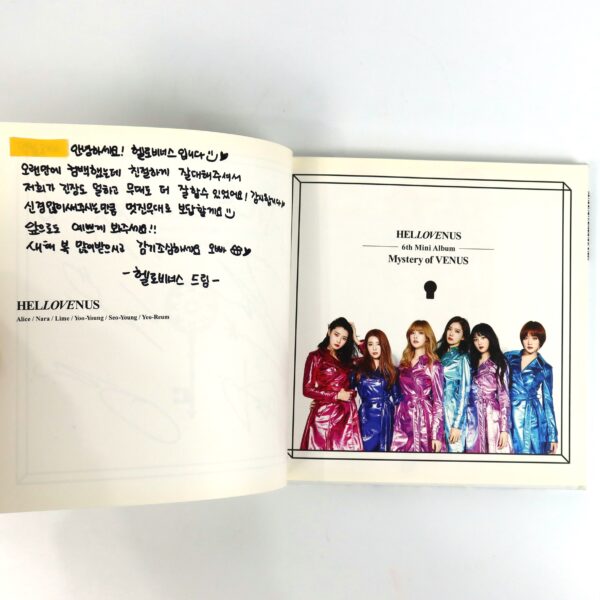 안녕하세요! 헬로비너스 입니다
오랜만에 컴백했는데 친절하게 잘대해주셔서
저희가 긴장도 덜하고 무대도 더 잘할수 있었어요! 감사합니다
신경많이써주시는만큼 멋진무대로 보답할게요
앞으로도 예쁘게 봐주세요!!
새해 복 많이받으시고 감기조심하세요 오빠
-헬로비너스 드림-
HELLOVENUS
Alice / Nara / Lime / Yoo-Young / Seo-Young / Yeo-Reum
HELLOVENUS
6th Mini Album
Mystery of VENUS